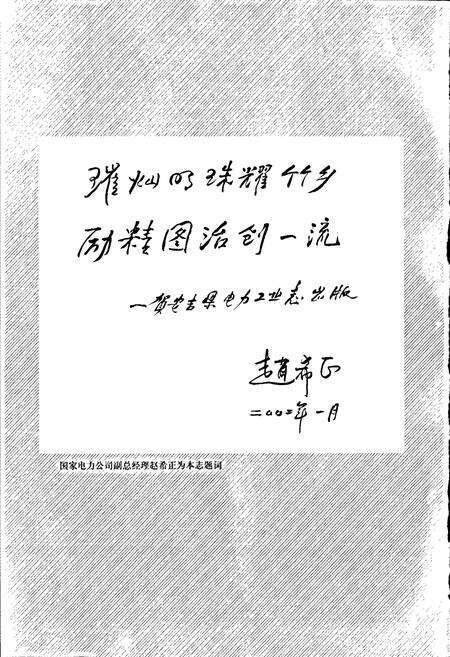 璀灿明珠耀竹乡
励精图治创一流
一贺安吉县电力工业志出版
赵希正
二〇〇二年一月
国家电力公司副总经理赵希正为本志题词